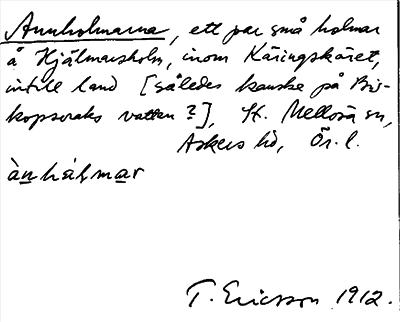 Annholmarna, ett par små holmar
å Hjälmarsholm, inom Käringskäret,
intill land [således kanske på Bis-
kopsvraks vatten?], St. Mellösa sn,
Askers hd, Ör. l.
ànhál̥mar
T. Ericsson 1912.